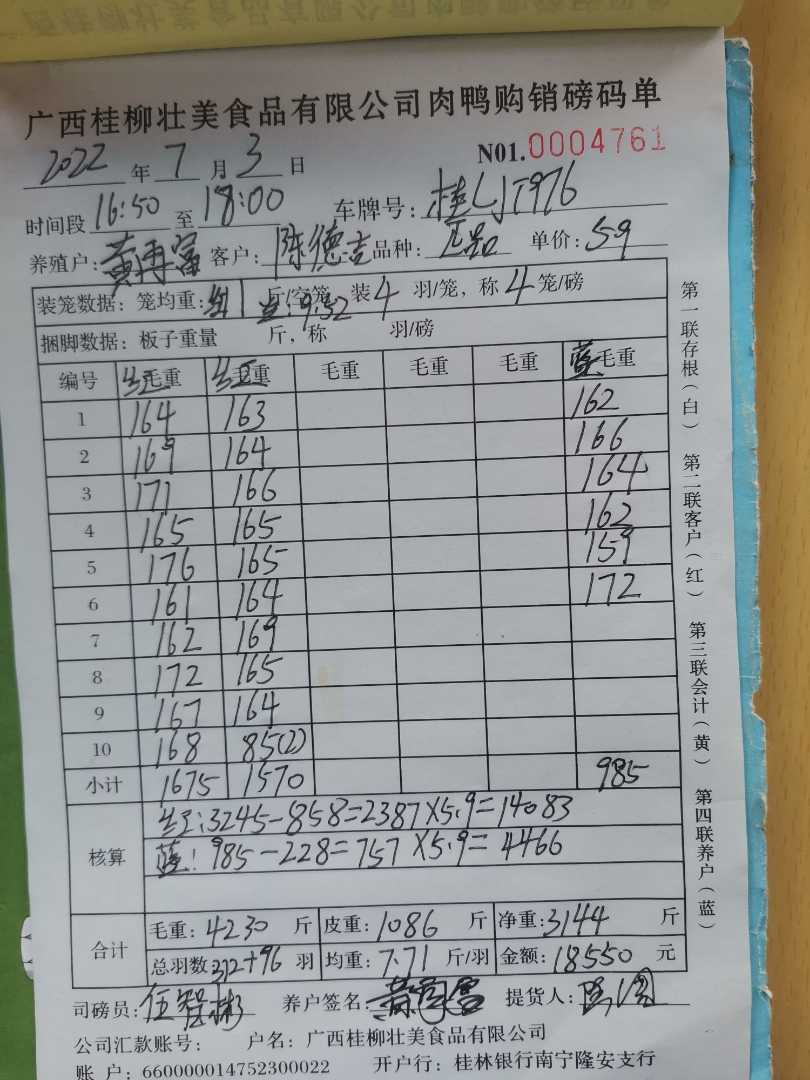 广西桂柳壮美食品有限公司肉鸭购销磅码单
2022 年 7 月 3 日 N01.0004761
时间段 16:50 至 18:00 车牌号: 桂
养殖户: 黄再富 客户: 陈德吉 品种: 单价: 5.9
装笼数据: 笼均重: 红 斤/空笼, 装 4 羽/笼, 称 4 笼/磅
捆脚数据: 板子重量 斤, 称 羽/磅
编号 红毛重 红毛重 毛重 毛重 毛重 蓝毛重
1 164 163 162
2 169 164 166
3 171 166 164
4 165 165 162
5 176 165 159
6 161 164 172
7 162 169
8 172 165
9 167 164
10 168 85(2)
小计 1675 1570 985
核算 红:3245-858=2387×5.9=14083
蓝:985-228=757×5.9=4466
合计 毛重: 4230 斤 皮重: 1086 斤 净重: 3144 斤
总羽数 312+96 羽 均重: 7.71 斤/羽 金额: 18550 元
司磅员: 伍智彬 养户签名: 提货人:
公司汇款账号: 户名: 广西桂柳壮美食品有限公司
账 户: 660000014752300022 开户行: 桂林银行南宁隆安支行
第一联存根(白) 第二联客户(红) 第三联会计(黄) 第四联养户(蓝)